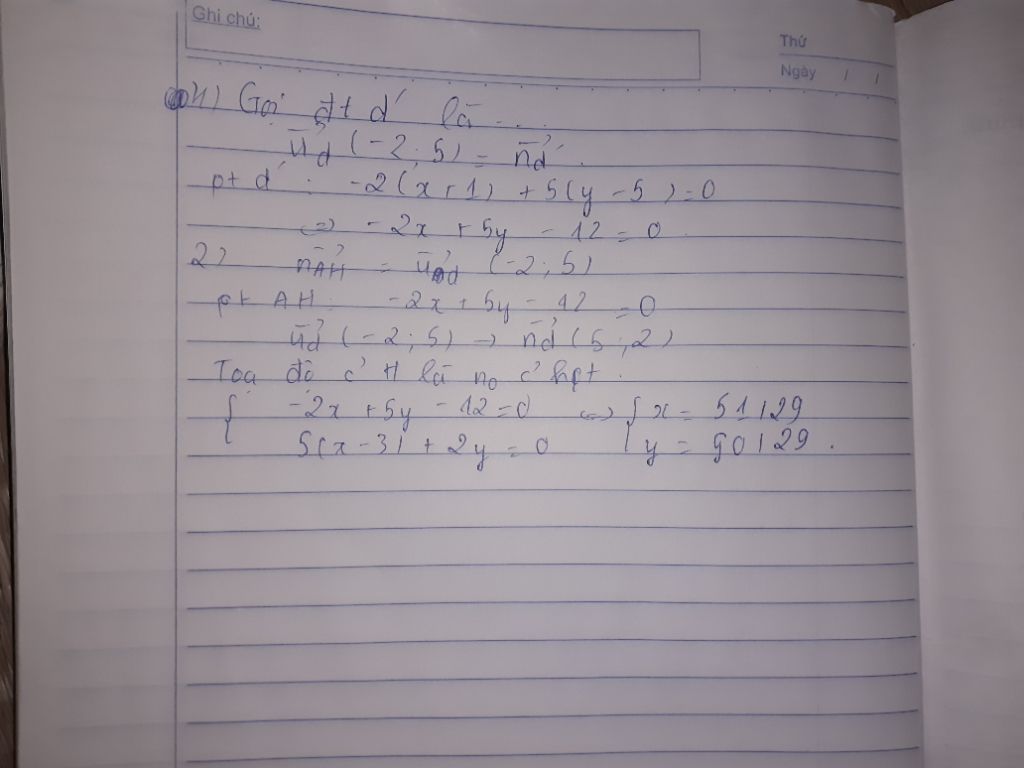 Ghi chú:
Thứ
Ngày / /
1) Gọi đt d' là ...
u⃗d (-2; 5) = n⃗d'.
pt d' : -2(x+1) + 5(y-5) = 0
<=> -2x + 5y - 12 = 0.
2) n⃗AH = u⃗d (-2; 5)
pt AH: -2x + 5y - 12 = 0
u⃗d (-2; 5) → n⃗d (5; 2)
Toạ độ c' H là no c' hpt.
{ -2x + 5y - 12 = 0 <=> { x = 51/29
5(x-3) + 2y = 0 y = 90/29.